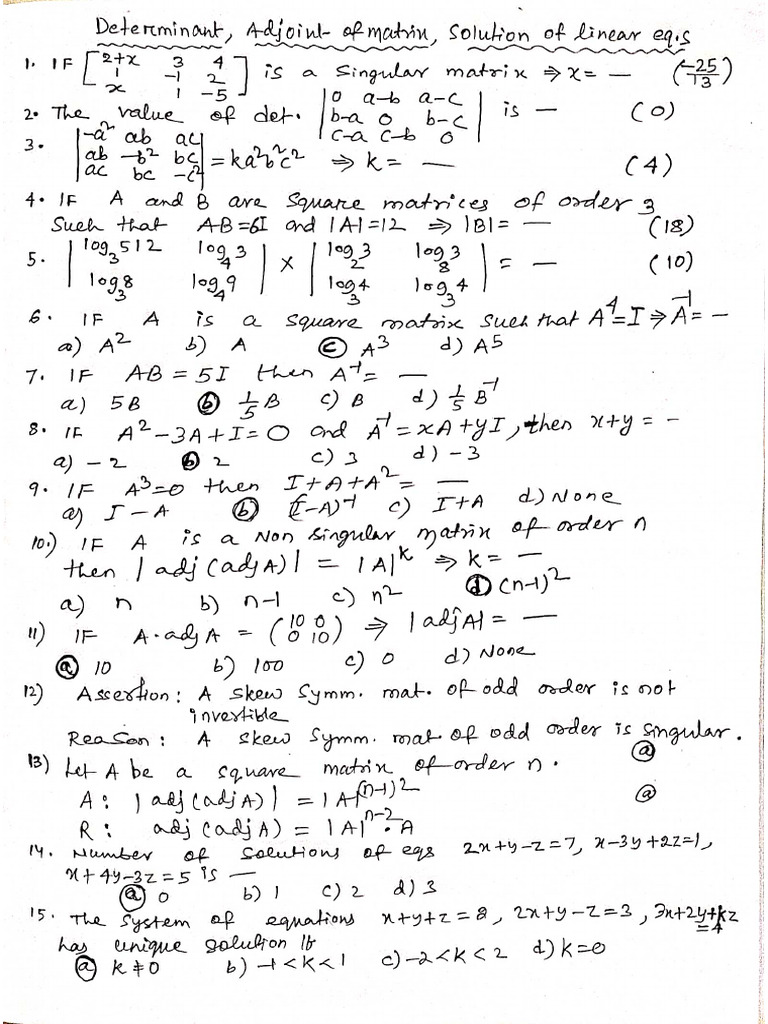 Determinant, Adjoint of matrix, Solution of linear eq.s
1. IF [2+x 3 4 / 1 -1 2 / x 1 -5] is a singular matrix ⇒ x = — (-25/13)
2. The value of det. |0 a-b a-c / b-a 0 b-c / c-a c-b 0| is — (0)
3. |-a² ab ac / ab -b² bc / ac bc -c²| = ka²b²c² ⇒ k = — (4)
4. IF A and B are square matrices of order 3
such that AB=6I and |A|=12 ⇒ |B| = — (18)
5. |log₃512 log₄3 / log₃8 log₄9| × |log₂3 log₈3 / log₃4 log₃4| = — (10)
6. IF A is a square matrix such that A⁴=I ⇒ A⁻¹= —
a) A² b) A (c) A³ d) A⁵
7. IF AB = 5I then A⁻¹ = —
a) 5B (b) 1/5 B c) B d) 1/5 B⁻¹
8. IF A²-3A+I=0 and A⁻¹=xA+yI, then x+y = —
a) -2 (b) 2 c) 3 d) -3
9. IF A³=0 then I+A+A² = —
a) I-A (b) (I-A)⁻¹ c) I+A d) None
10.) IF A is a Non singular matrix of order n
then |adj(adjA)| = |A|^k ⇒ k = —
a) n b) n-1 c) n² (d) (n-1)²
11) IF A.adjA = (10 0 / 0 10) ⇒ |adjA| = —
(a) 10 b) 100 c) 0 d) None
12) Assertion: A skew symm. mat. of odd order is not
invertible
Reason: A skew symm. mat of odd order is singular.
(a)
13) Let A be a square matrix of order n.
A: |adj(adjA)| = |A|^(n-1)²
(a)
R: adj(adjA) = |A|^n-2.A
14. Number of solutions of eqs 2x+y-z=7, x-3y+2z=1,
x+4y-3z=5 is —
(a) 0 b) 1 c) 2 d) 3
15. The system of equations x+y+z=8, 2x+y-z=3, 3x+2y+kz
=4
has unique solution if
(a) k≠0 b) -1<k<1 c) -2<k<2 d) k=0